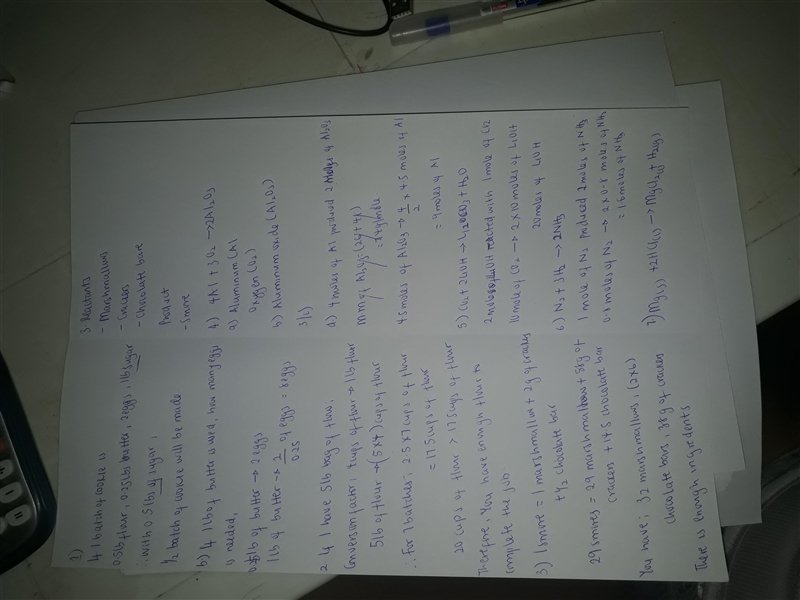 1)
4 1 batch of cookie is
0.5lb flour, 0.25lb butter, 2eggs, 1lb sugar
∴ with 0.5 lbs of sugar,
½ batch of cookie will be made
b) 4 1lb of butter is used, how many eggs
is needed,
lb of butter → 2 eggs
1lb of butter → 2/0.25 of eggs = 8 eggs
2. 4 I have 5lb bag of flour.
Conversion factor: 4 cups of flour → 1lb flour
5lb of flour → (5x4) cups of flour
∴ For 7 batches: 2.5 x 7 cups of flour
= 17.5 cups of flour
20 cups of flour > 17.5 cups of flour
Therefore, you have enough flour to
complete the job
3) 1 smore = 1 marshmallow + 2g of cracker
+ ½ chocolate bar
29 smores = 29 marshmallows + 58g of
crackers + 14.5 chocolate bar
You have; 32 marshmallows, (2x6)
chocolate bars, g of crackers
There is enough ingredients
3 Reactants
- Marshmallows
- Crackers
- Chocolate bars
Product
- Smore
4) 4Al + 3O2 → 2Al2O3
a) Aluminum (Al
Oxygen (O2)
b) Aluminum oxide (Al2O3)
3/c)
d) 4 moles of Al produced 2 Moles of Al2O3
4.5 moles of Al2O3 → 4/2 x 4.5 moles of Al
= 9 moles of Al
5) CO2 + 2LiOH → Li2CO3 + H2O
2 moles of LiOH reacted with 1 mole of CO2
10 mole of CO2 → 2 x 10 moles of LiOH
20 moles of LiOH
6) N2 + 3H2 → 2NH3
1 mole of N2 produced 2 moles of NH3
0.8 moles of N2 → 2 x 0.8 moles of NH3
= 1.6 moles of NH3
7) Mg(s) + 2HCl(l) → MgCl2() + H2(g)